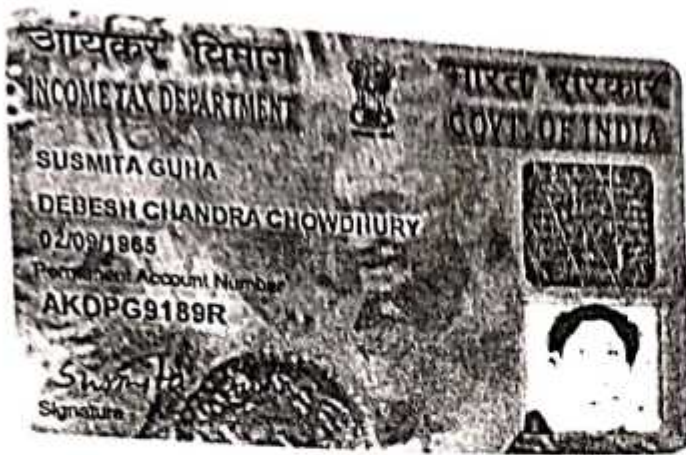 आयकर विभाग
INCOME TAX DEPARTMENT
भारत सरकार
GOVT. OF INDIA
SUSMITA GUHA
DEBESH CHANDRA CHOWDHURY
02/09/1965
Permanent Account Number
AKDPG9189R
Susmita
Signature